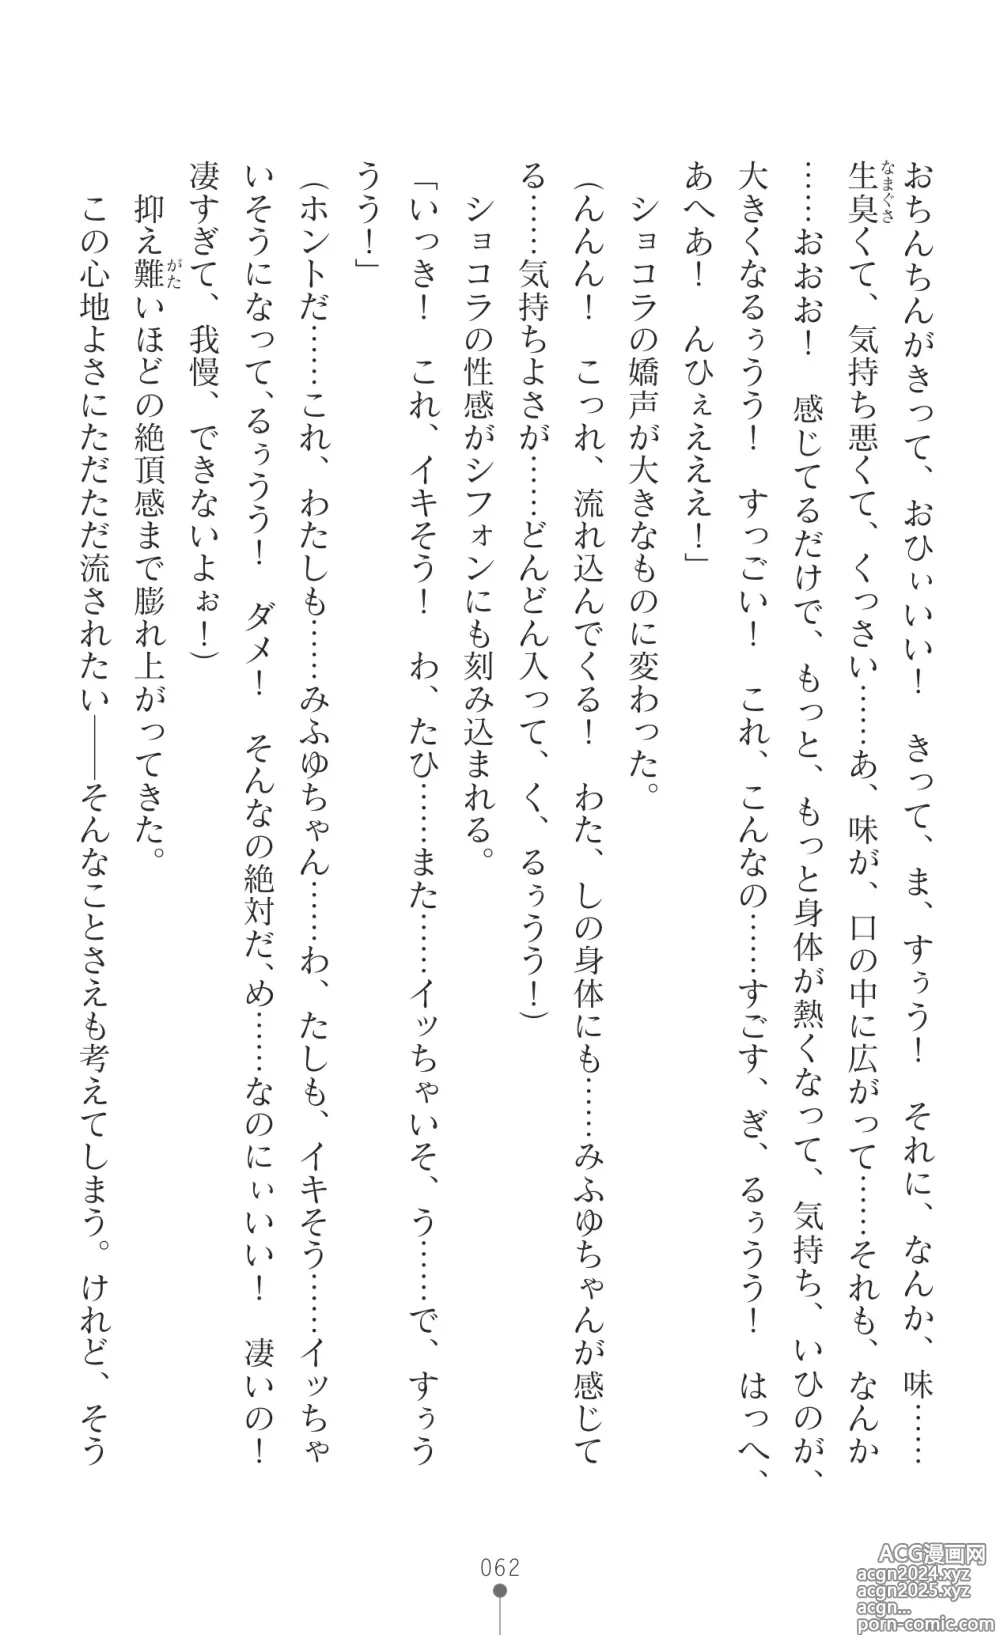 おちんちんがきって、おひぃいい！　きって、ま、すぅう！　それに、なんか、味……
生臭くて、気持ち悪くて、くっさい……あ、味が、口の中に広がって……それも、なんか
……おおお！　感じてるだけで、もっと、もっと身体が熱くなって、気持ち、いひのが、
大きくなるぅうう！　すっごい！　これ、こんなの……すごす、ぎ、るぅうう！　はっへ、
あへあ！　んひぇえええ！」
　ショコラの嬌声が大きなものに変わった。
（んんん！　こっれ、流れ込んでくる！　わた、しの身体にも……みふゆちゃんが感じて
る……気持ちよさが……どんどん入って、く、るぅうう！）
　ショコラの性感がシフォンにも刻み込まれる。
「いっき！　これ、イキそう！　わ、たひ……また……イッちゃいそ、う……で、すぅう
うう！」
（ホントだ……これ、わたしも……みふゆちゃん……わ、たしも、イキそう……イッちゃ
いそうになって、るぅうう！　ダメ！　そんなの絶対だ、め……なのにぃいい！　凄いの！
凄すぎて、我慢、できないよぉ！）
　抑え難いほどの絶頂感まで膨れ上がってきた。
　この心地よさにただただ流されたい――そんなことさえも考えてしまう。けれど、そう
なまぐさ
がた
062
ACG漫画网
acgn2024.xyz
acgn2025.xyz
acgn...
porn-comic.com